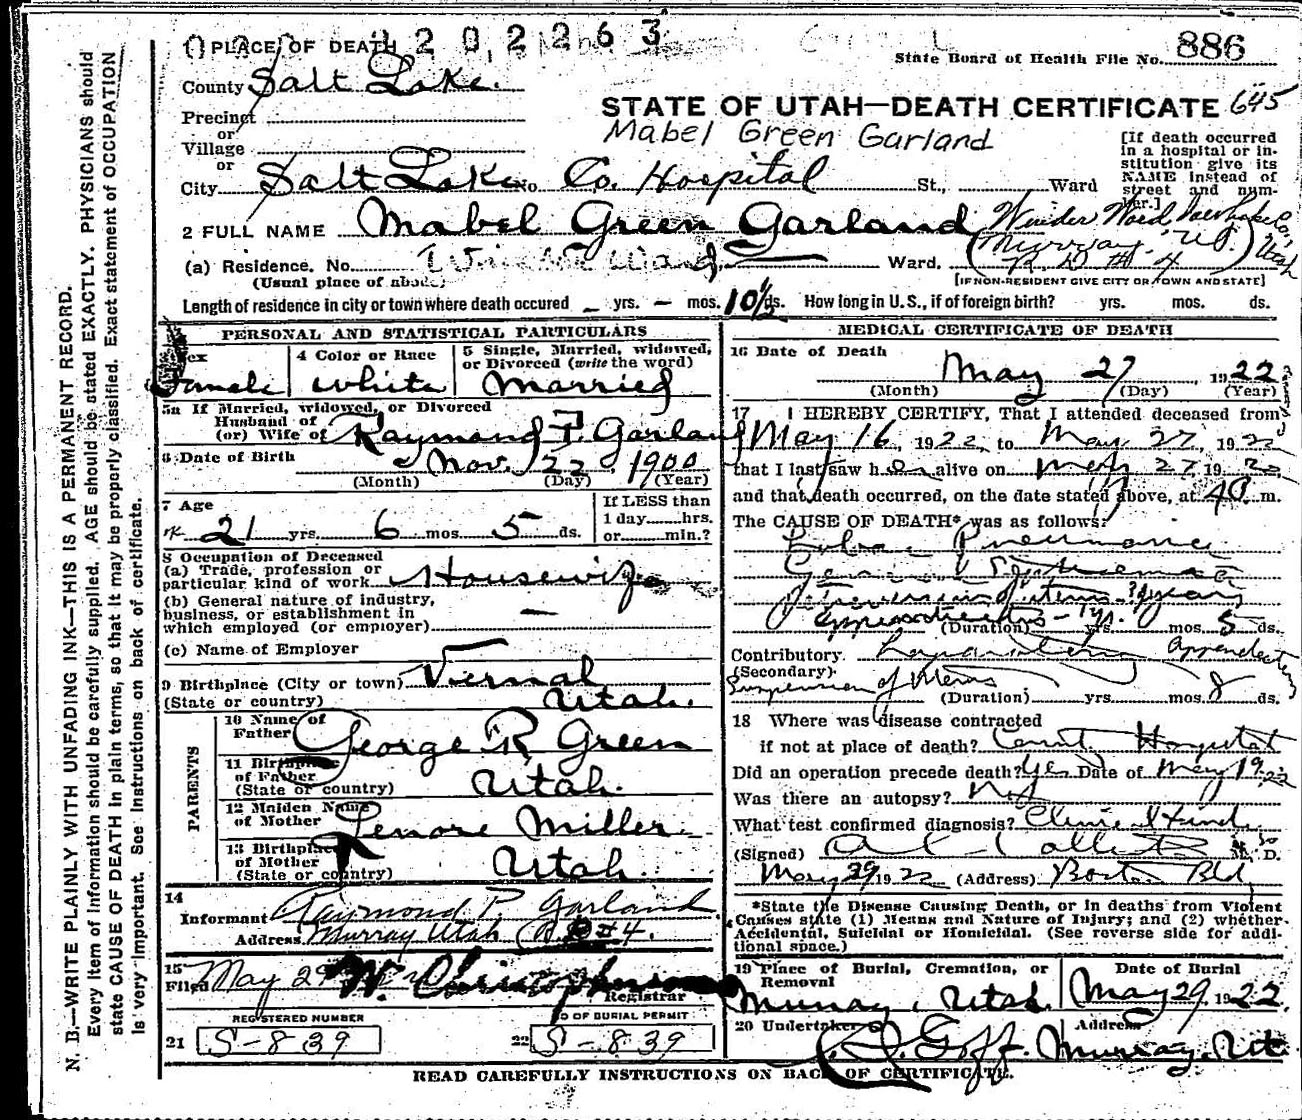 PLACE OF DEATH 4 2 0 2 2 6 3
State Board of Health File No. 886
County Salt Lake.
STATE OF UTAH—DEATH CERTIFICATE 645
Precinct
or
Village
or
Mabel Green Garland
[If death occurred
in a hospital or in-
stitution give its
NAME instead of
street and num-
ber.]
City Salt Lake No. Co. Hospital St., Ward
2 FULL NAME Mabel Green Garland
Winder Ward, Salt Lake Co, Utah
(a) Residence. No. Winder Ward, Ward. (Murray, Ut. R. D. #4)
(Usual place of abode) [IF NON-RESIDENT GIVE CITY OR TOWN AND STATE]
Length of residence in city or town where death occured – yrs. – mos. 10 1/2 ds. How long in U.S., if of foreign birth? yrs. mos. ds.
PERSONAL AND STATISTICAL PARTICULARS
Sex Female
4 Color or Race White
5 Single, Married, widowed,
or Divorced (write the word)
Married
5a If Married, widowed, or Divorced
Husband of
(or) Wife of Raymond P. Garland
6 Date of Birth Nov. 22 1900
(Month) (Day) (Year)
7 Age
21 yrs. 6 mos. 5 ds.
If LESS than
1 day hrs.
or min.?
8 Occupation of Deceased
(a) Trade, profession or
particular kind of work Housewife
(b) General nature of industry,
business, or establishment in
which employed (or employer) —
(c) Name of Employer
9 Birthplace (City or town) Vernal
(State or country) Utah.
PARENTS
10 Name of
Father George R Green
11 Birthplace
of Father
(State or country) Utah.
12 Maiden Name
of Mother Lenore Miller.
13 Birthplace
of Mother
(State or country) Utah.
14
Informant Raymond P. Garland
Address Murray Utah R. D #4.
15
Filed May 29 W. Christopherson
Registrar
REGISTERED NUMBER
21 S-839
OF BURIAL PERMIT
22 S-839
MEDICAL CERTIFICATE OF DEATH
16 Date of Death
May 27, 1922
(Month) (Day) (Year)
17 I HEREBY CERTIFY, That I attended deceased from
May 16, 1922, to May 27, 1922
that I last saw her alive on May 27 1922
and that death occurred, on the date stated above, at 4 a m.
The CAUSE OF DEATH* was as follows:
Lobar Pneumonia
(Duration) yrs. mos. 5 ds.
Contributory. Laparotomy Appendectomy
(Secondary)
Suspension of Uterus
(Duration) yrs. mos. 8 ds.
18 Where was disease contracted
if not at place of death? County Hospital
Did an operation precede death? Yes Date of May 19-22
Was there an autopsy? No
What test confirmed diagnosis? Clinical
(Signed) M. D.
May 29 1922 (Address) Boston Bld
*State the Disease Causing Death, or in deaths from Violent
Causes state (1) Means and Nature of Injury; and (2) whether
Accidental, Suicidal or Homicidal. (See reverse side for addi-
tional space.)
19 Place of Burial, Cremation, or
Removal
Murray, Utah.
Date of Burial
May 29, 1922
20 Undertaker Goff.
Address Murray, Ut.
READ CAREFULLY INSTRUCTIONS ON BACK OF CERTIFICATE.
N. B.—WRITE PLAINLY WITH UNFADING INK—THIS IS A PERMANENT RECORD.
Every item of information should be carefully supplied. AGE should be stated EXACTLY. PHYSICIANS should
state CAUSE OF DEATH in plain terms, so that it may be properly classified. Exact statement of OCCUPATION
is very important. See instructions on back of certificate.